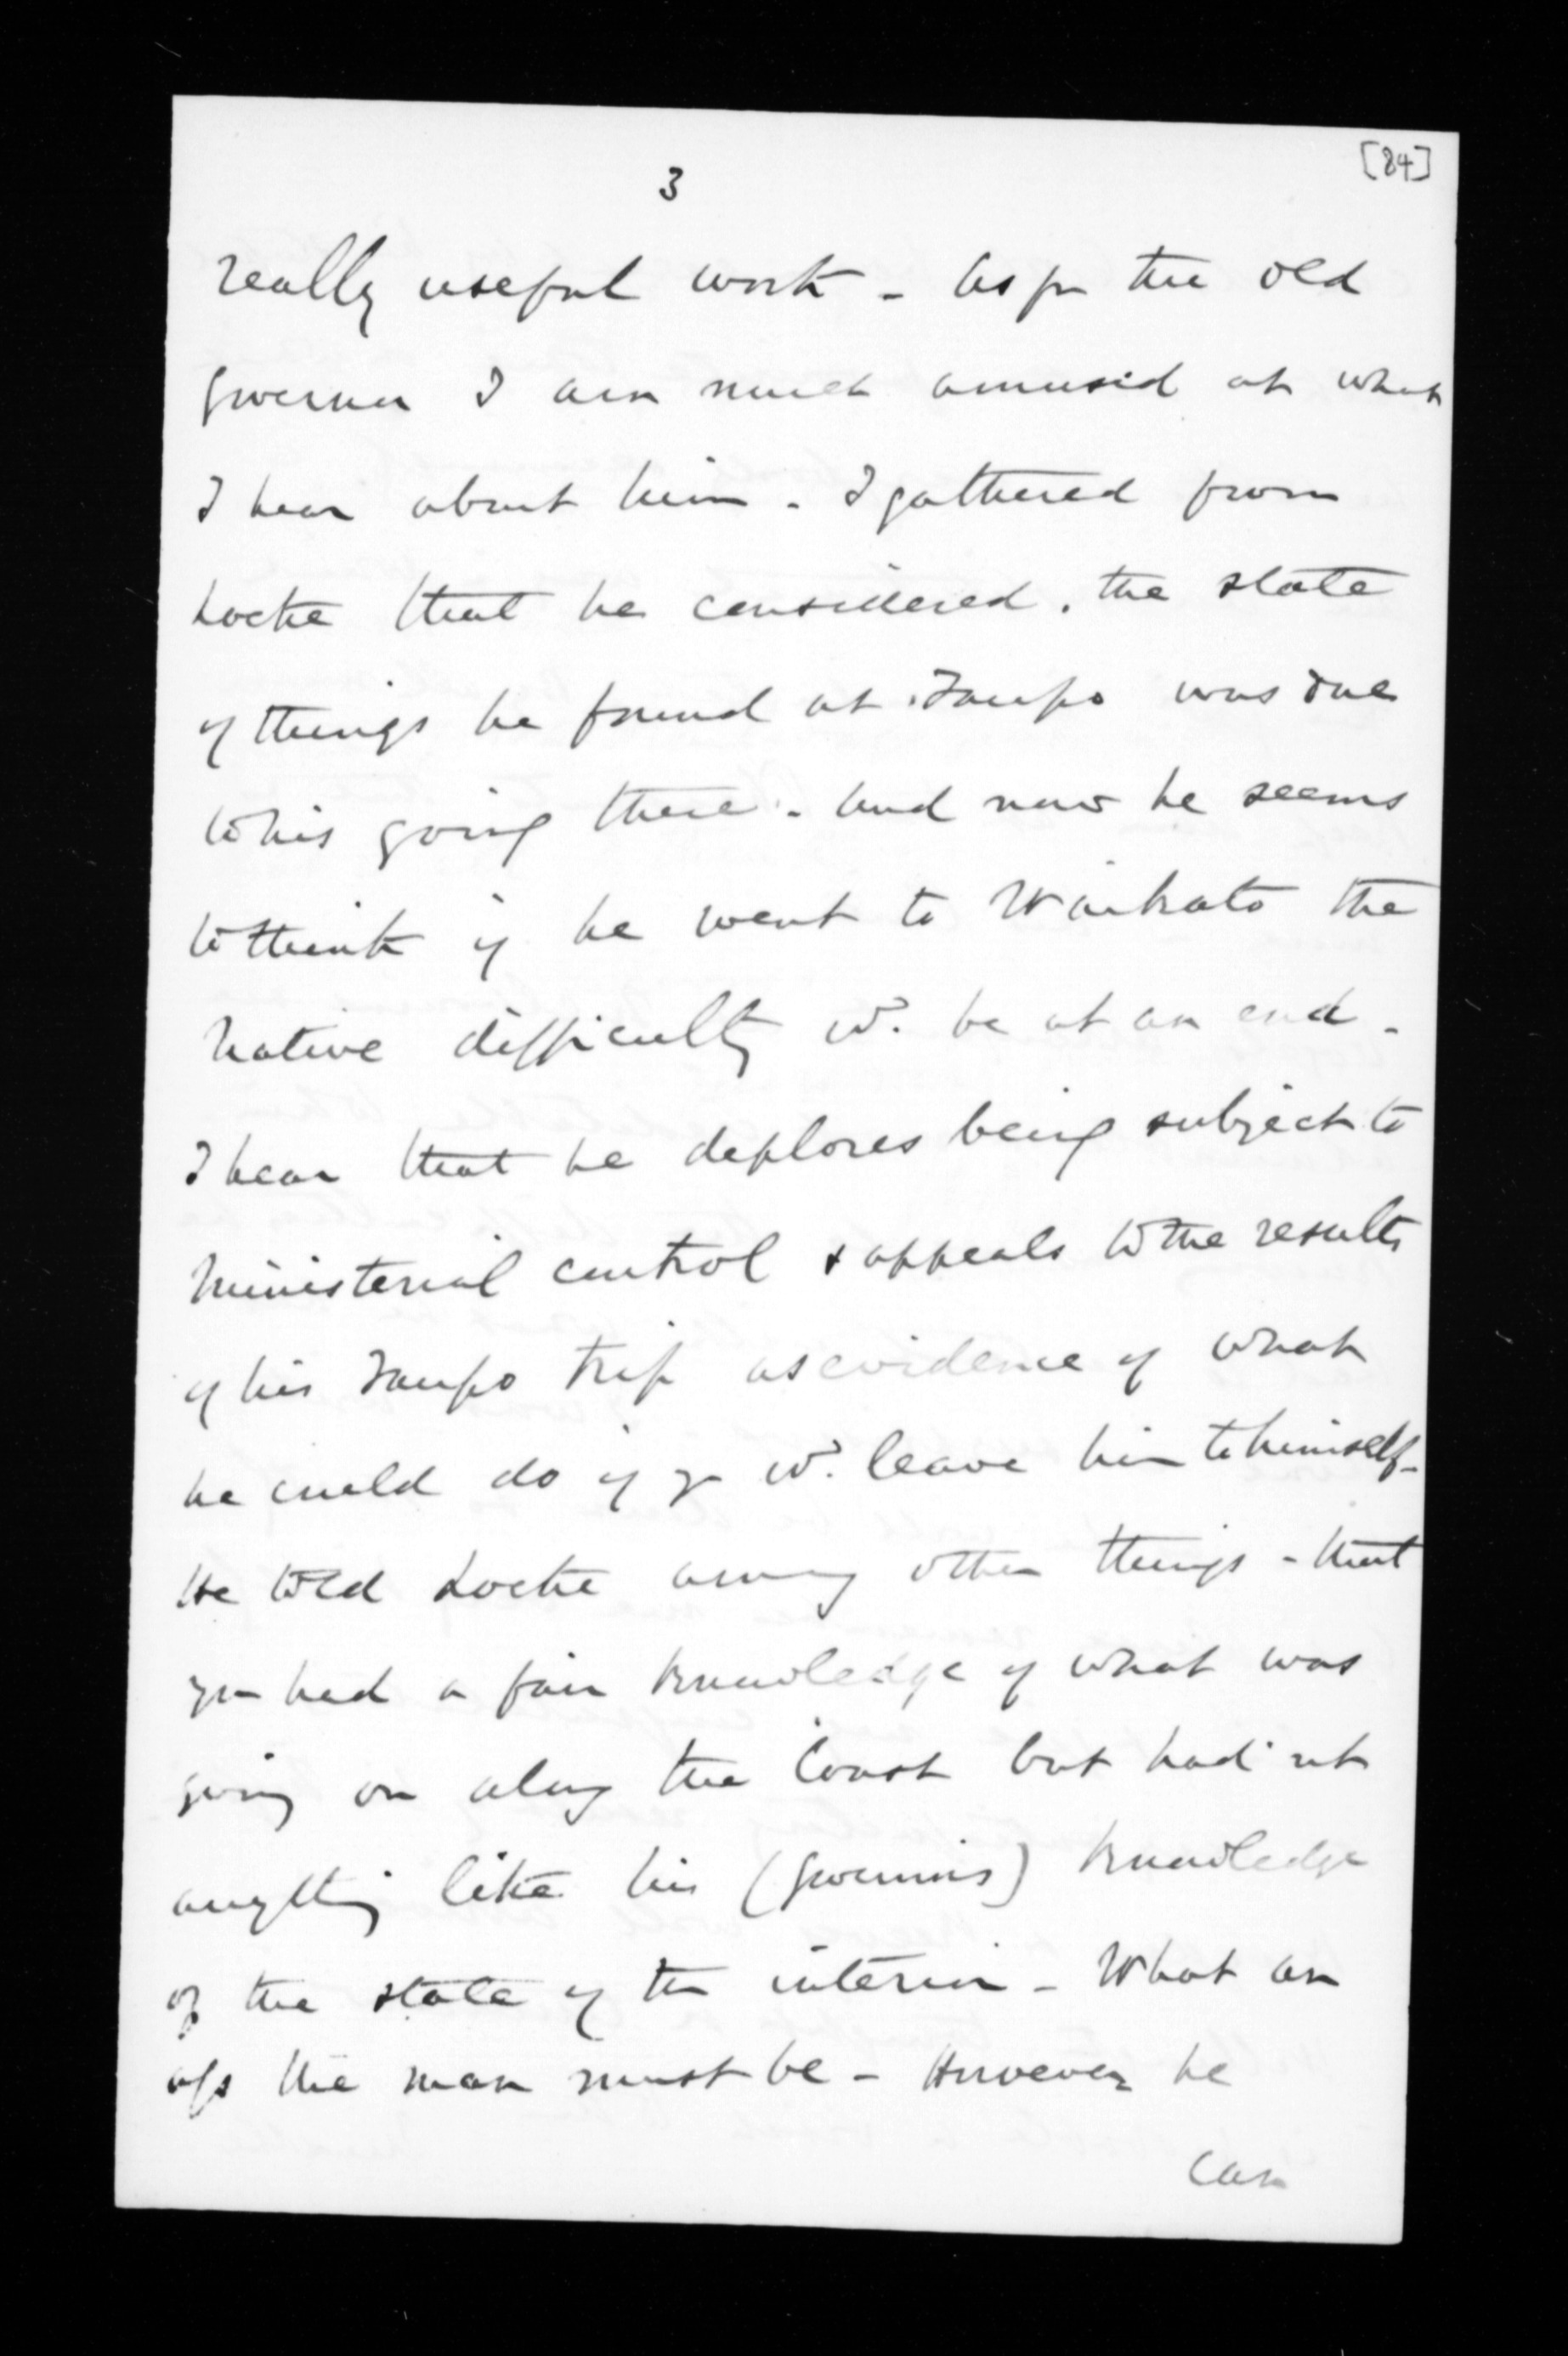 [84]
3
really useful work - As for the old
Governor I am much amused at what
I hear about him - I gathered from
Locke that he considered, the state
of things he found at Taupo was due
to his going there - And now he seems
to think if he went to Waikato the
native difficulty wd. be at an end -
I hear that he deplores being subject to
Ministerial control & appeals to the results
of his Taupo trip as evidence of what
he could do if you wd. leave him to himself -
He told Locke among other things - that
you had a fair knowledge of what was
going on along the Coast but had not
anything like his (Governors) knowledge
of the state of the interior - What an
ass the man must be - However he
can